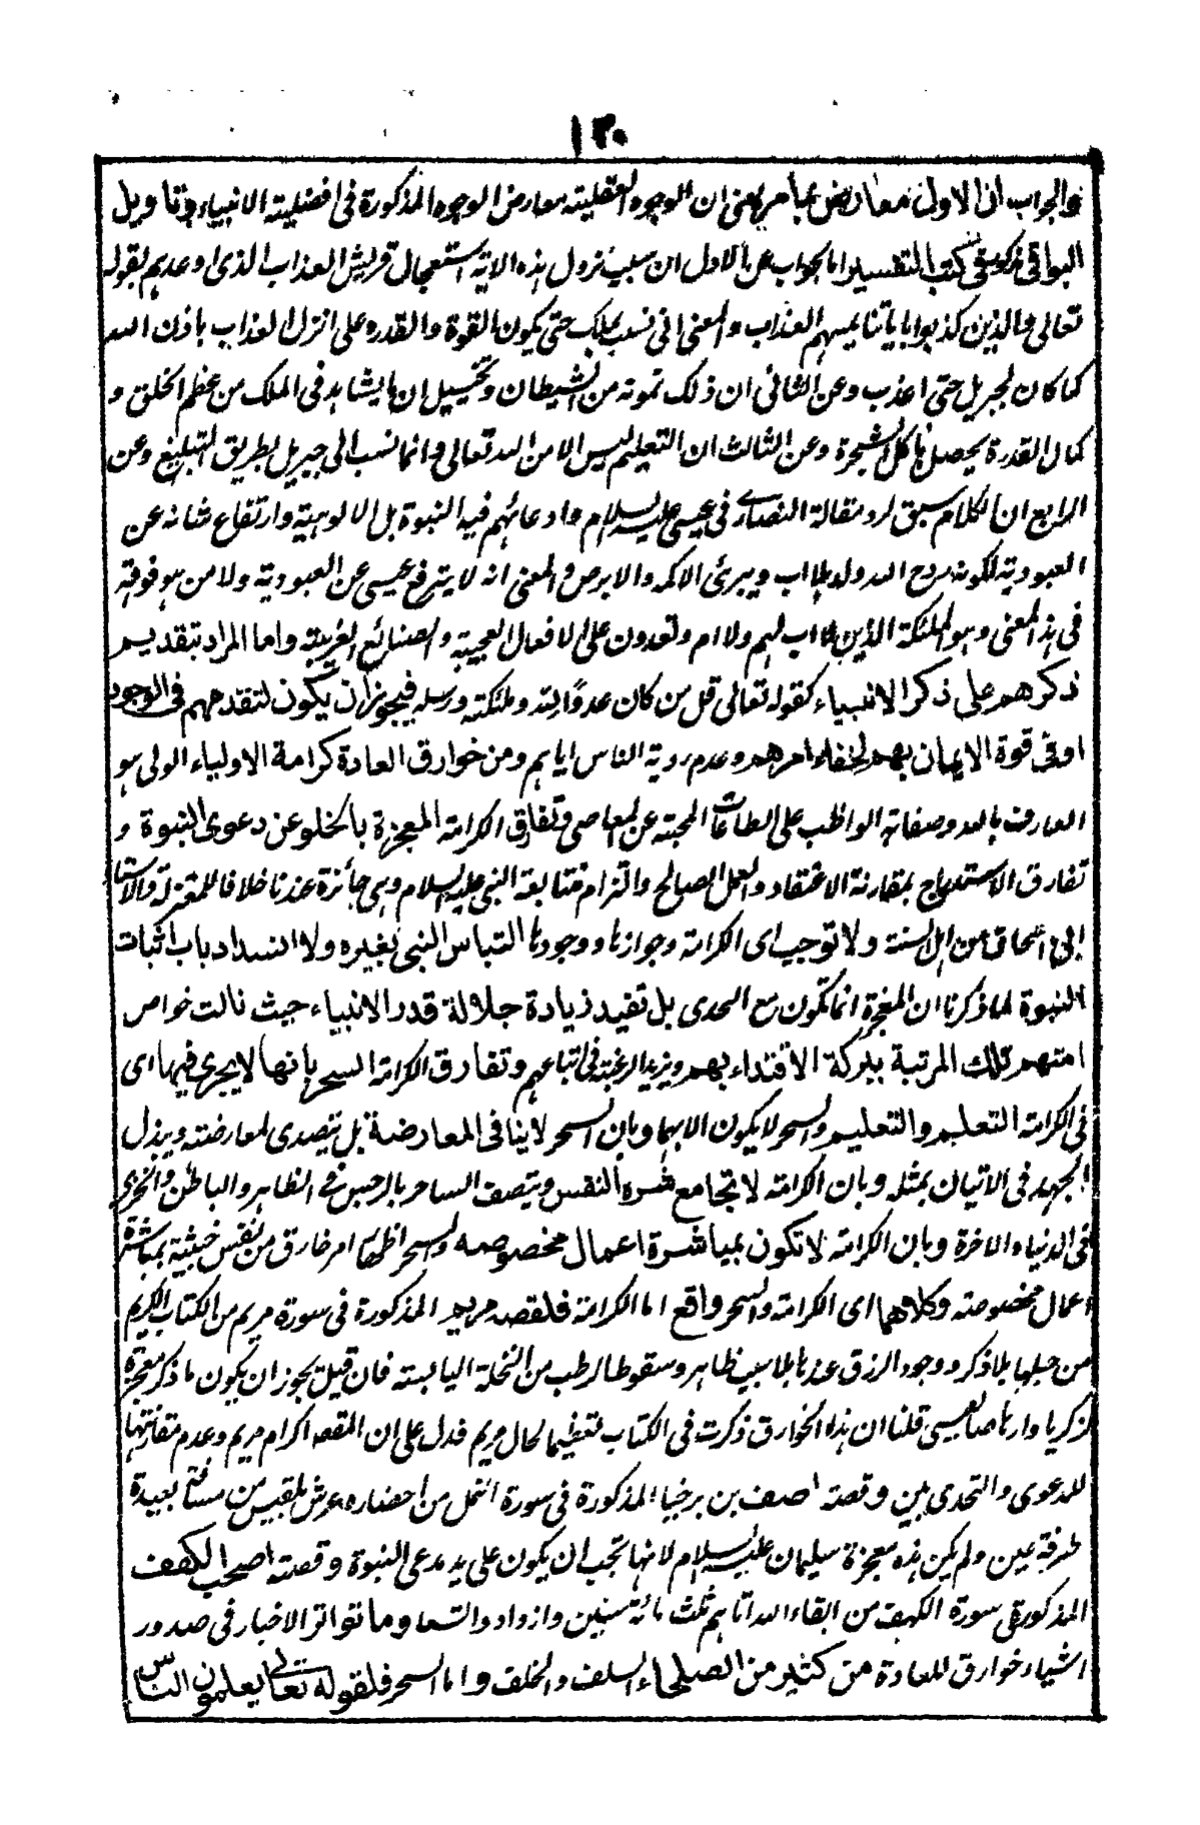 ۱۳۰
والجواب ان الاول معارض بما مر يعنى ان الوجوه العقلية معارض الوجوه المذكورة فى افضلية الانبياء وتاويل
البواقى مذكور فى كتب التفسير اما الجواب عن الاول ان سبب نزول هذه الاية استعجال قريش العذاب الذى اوعدهم بقوله
تعالى والذين كذبوا باياتنا يمسهم العذاب والمعنى انى لست بملك حتى يكون القوة والقدرة على انزال العذاب باذن الله
كما كان لجبريل حتى اعذب وعن الثانى ان ذلك تمويه من الشيطان وتخييل ان ما يشاهد فى الملك من عظم الخلق و
كمال القدرة يحصل باكل الشجرة وعن الثالث ان التعليم ليس الا من الله تعالى وانما نسب الى جبريل بطريق التبليغ وعن
الرابع ان الكلام سبق لرد مقالة النصارى فى عيسى عليه السلام وادعائهم فيه النبوة بل الالوهية وارتفاع شانه عن
العبودية لكونه روح الله ولد بلا اب ويبرئ الاكمه والابرص والمعنى انه لا يترفع عيسى عن العبودية ولا من هو فوقه
فى هذا المعنى وهو الملئكة الذين لا اب لهم ولا ام ويقدرون على الافعال العجيبة والصنائع الغريبة واما المراد بتقديم
ذكرهم على ذكر الانبياء كقوله تعالى قل من كان عدوا لله وملئكته ورسله فيجوز ان يكون لتقدمهم فى الوجود
او فى قوة الايمان بهم لخفاء امرهم وعدم روية الناس اياهم ومن خوارق العادة كرامة الاولياء الولى هو
العارف بالله وصفاته المواظب على الطاعات المجتنب عن المعاصى وتفارق الكرامة المعجزة بالخلو عن دعوى النبوة و
تفارق الاستدراج بمقارنة الاعتقاد والعمل الصالح والتزام متابعة النبى عليه السلام وهى جائزة عندنا خلافا للمعتزلة والاستاذ
ابى اسحاق من اهل السنة ولا توجب اى الكرامة وجوازها ووجودها التباس النبى بغيره ولا انسداد باب اثبات
النبوة لما ذكرنا ان المعجزة انما تكون مع التحدى بل تفيد زيادة جلالة قدر الانبياء حيث نالت خواص
امتهم تلك المرتبة ببركة الاقتداء بهم ويزيد الرغبة فى اتباعهم وتفارق الكرامة السحر بانها لا يجرى فيها اى
فى الكرامة التعليم والتعليم والسحر لا يكون الا بهما وبان السحر لا ينافى المعارضة بل يتصدى لمعارضته ويبذل
الجهد فى الاتيان بمثله وبان الكرامة لا تجامع شره النفس ويتصف الساحر بالرجس فى الظاهر والباطن والخزى
فى الدنيا والاخرة وبان الكرامة لا تكون بمباشرة اعمال مخصوصه والسحر اظهار امر خارق من نفس خبيثة بمباشرة
اعمال مخصوصته وكلاهما اى الكرامة والسحر واقع اما الكرامة فلقصه مريم المذكورة فى سورة مريم من الكتاب الكريم
من حبلها بلا ذكر ووجود الرزق عندها بلا سبب ظاهر وسقوط الرطب من النخلة اليابسته فان قيل يجوز ان يكون ما ذكر معجزة
لزكريا وارهاصا لعيسى قلنا ان هذه الخوارق ذكرت فى الكتاب تعظيما لحال مريم فدل على ان المقصد اكرام مريم وعدم مقارنتها
للدعوى والتحدى بين وقصة اصف بن برخيا المذكورة فى سورة النمل من احضاره عرش بلقيس من مسافة بعيدة
طرفة عين ولم يكن هذه معجزة سليمان عليه السلام لانها تجب ان يكون على يد مدعى النبوة وقصة اصحب الكهف
المذكورة فى سورة الكهف من ابقاء الله اياهم ثلث مائة سنين وازدادوا تسعا وما تواتر الاخبار فى صدور
اشياء خوارق للعادة من كثير من الصلحاء السلف والخلف واما السحر فلقوله تعالى يعلمون الناس